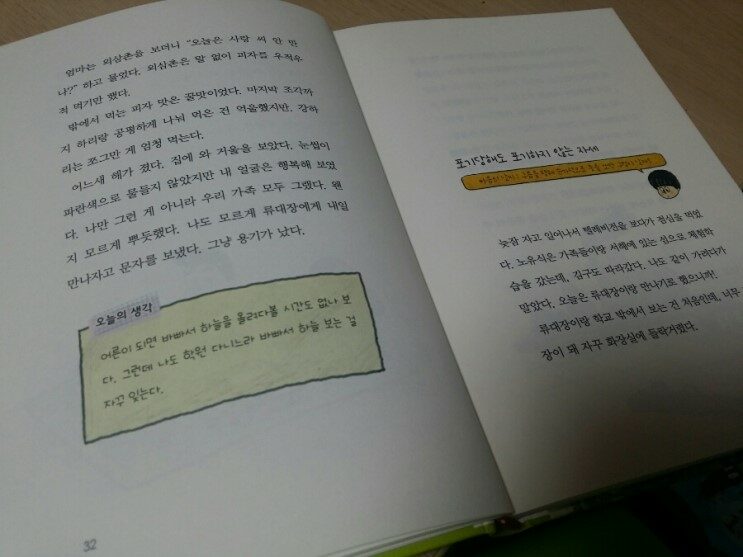 엄마는 외삼촌을 보더니 "오늘은 사랑 씨 안 만
나?" 하고 물었다. 외삼촌은 말 없이 피자를 우적우
적 먹기만 했다.
밖에서 먹는 피자 맛은 꿀맛이었다. 마지막 조각까
지 하리랑 공평하게 나눠 먹은 건 억울했지만. 강하
리는 쪼그만 게 엄청 먹는다.
어느새 해가 졌다. 집에 와 거울을 보았다. 눈썹이
파란색으로 물들지 않았지만 내 얼굴은 행복해 보였
다. 나만 그런 게 아니라 우리 가족 모두 그랬다. 왠
지 모르게 뿌듯했다. 나도 모르게 류대장에게 내일
만나자고 문자를 보냈다. 그냥 용기가 났다.
오늘의 생각
어른이 되면 바빠서 하늘을 올려다볼 시간도 없나 보
다. 그런데 나도 학원 다니느라 바빠서 하늘 보는 걸
자꾸 잊는다.
32
포기당해도 포기하지 않는 자세
늦잠 자고 일어나서 텔레비전을 보다가 점심을 먹었
다. 노유식은 가족들이랑 서해에 있는 섬으로 체험학
습을 갔는데, 김구도 따라갔다. 나도 같이 가려다가
말았다. 오늘은 류대장이랑 만나기로 했으니까!
류대장이랑 학교 밖에서 보는 건 처음인데, 너무
장이 돼 자꾸 화장실에 들락거렸다.